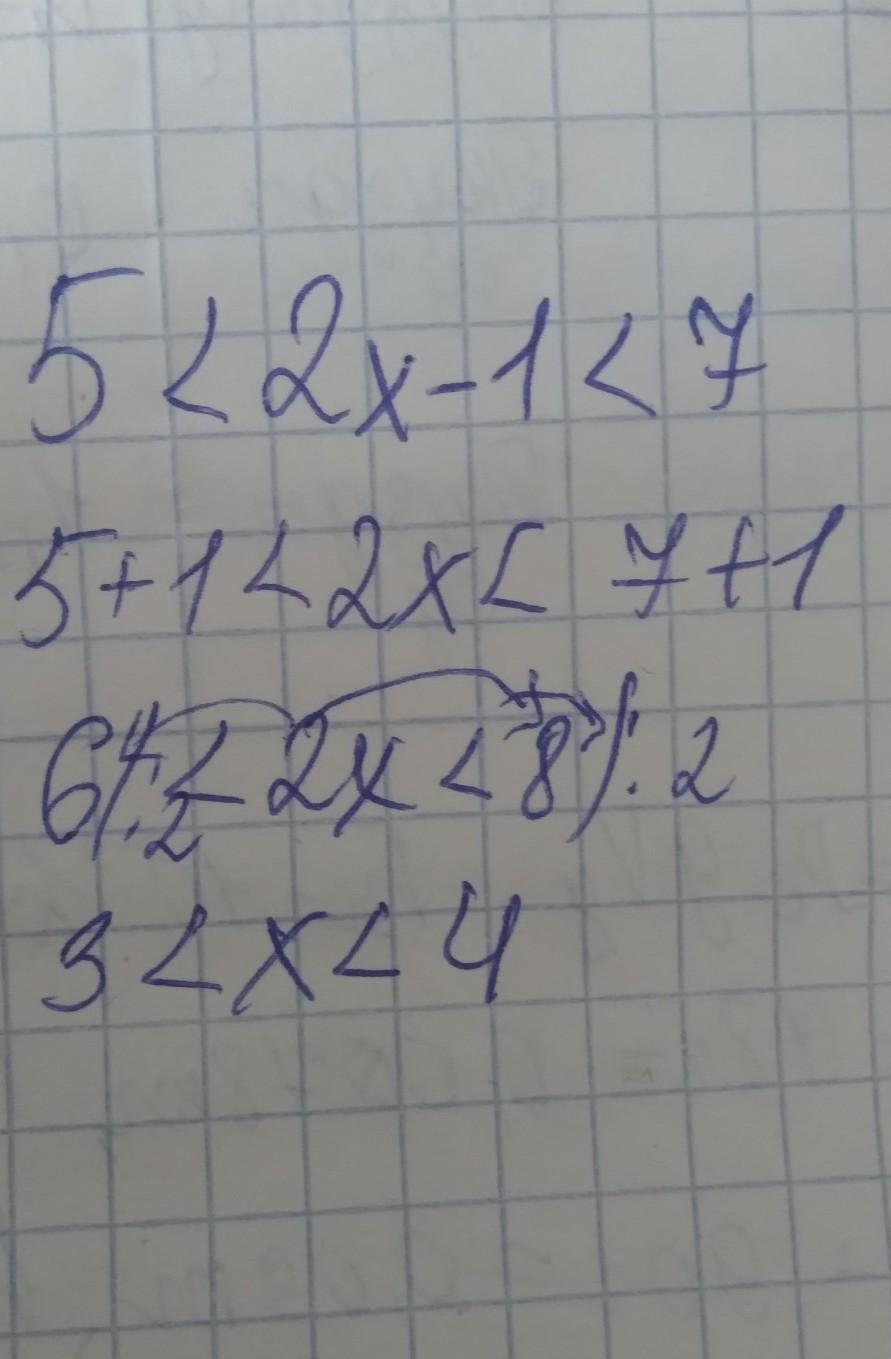 5 < 2x - 1 < 7
5 + 1 < 2x < 7 + 1
6 / : 2 < 2x < 8 / : 2
3 < x < 4